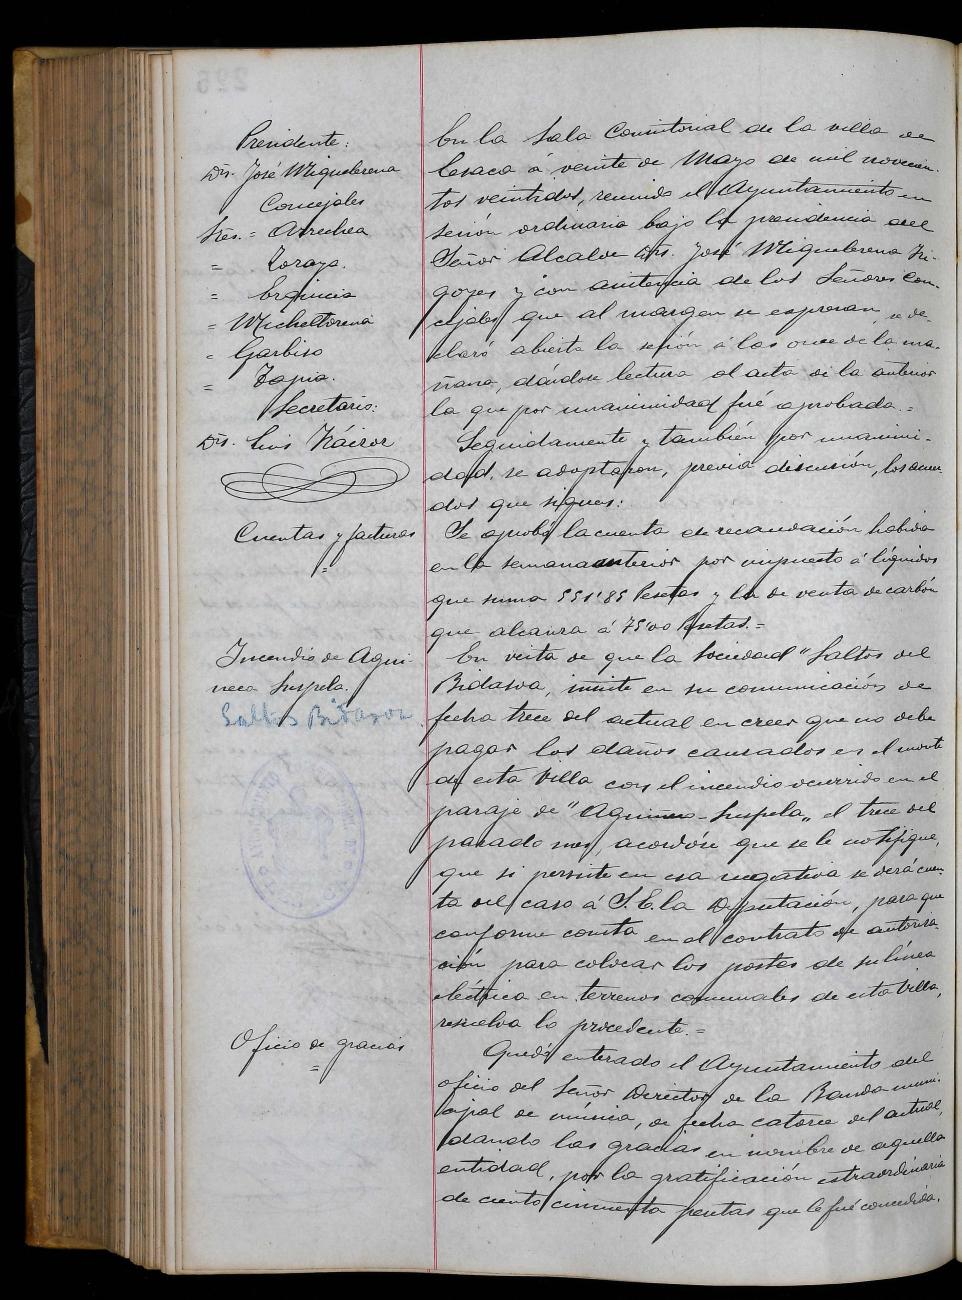 Presidente:
Dn. José Miguelerena
Concejales
Sres. = Arrechea
= Zoraya.
= Erquicia
= Micheltorena
= Garbiso
= Tapia.
Secretario:
Dn. Luis Iráizoz
En la Sala Consistorial de la villa de
Lesaca á veinte de Mayo de mil novecien-
tos veintidos, reunido el Ayuntamiento en
sesión ordinaria bajo la presidencia del
Señor Alcalde Dn. José Miguelerena Iri-
goyen y con asistencia de los Señores Con-
cejales que al margen se expresan, se de-
claró abierta la sesión á las once de la ma-
ñana, dándose lectura al acta de la anterior
la que por unanimidad fué aprobada.=
Seguidamente y también por unanimi-
dad, se adoptaron, previa discusión, los acuer-
dos que siguen:
Cuentas y facturas
=
Se aprobó la cuenta de recaudación habida
en la semana anterior por impuesto á líquidos
que suma 551'85 Pesetas y la de venta de carbón
que alcanza á 75'00 Pesetas.=
Incendio de Agui-
neco Suspela.
Saltos Bidasoa.
En vista de que la Sociedad "Saltos del
Bidasoa, insiste en su comunicación de
fecha trece del actual en creer que no debe
pagar los daños causados en el monte
de esta Villa con el incendio ocurrido en el
paraje de "Aguineco-Suspela„ el trece del
pasado mes, acordóse que se le notifique,
que si persiste en esa negativa se dará cuen-
ta del caso á S.E. la Diputación, para que
conforme consta en el contrato de autoriza-
ción para colocar los postes de su línea
eléctrica en terrenos comunales de esta Villa,
resuelva lo procedente.=
Oficio de gracias
=
Quedó enterado el Ayuntamiento del
oficio del Señor Director de la Banda muni-
cipal de música, de fecha catorce del actual,
dando las gracias en nombre de aquella
entidad, por la gratificación extraordinaria
de ciento cincuenta pesetas que le fué concedida.